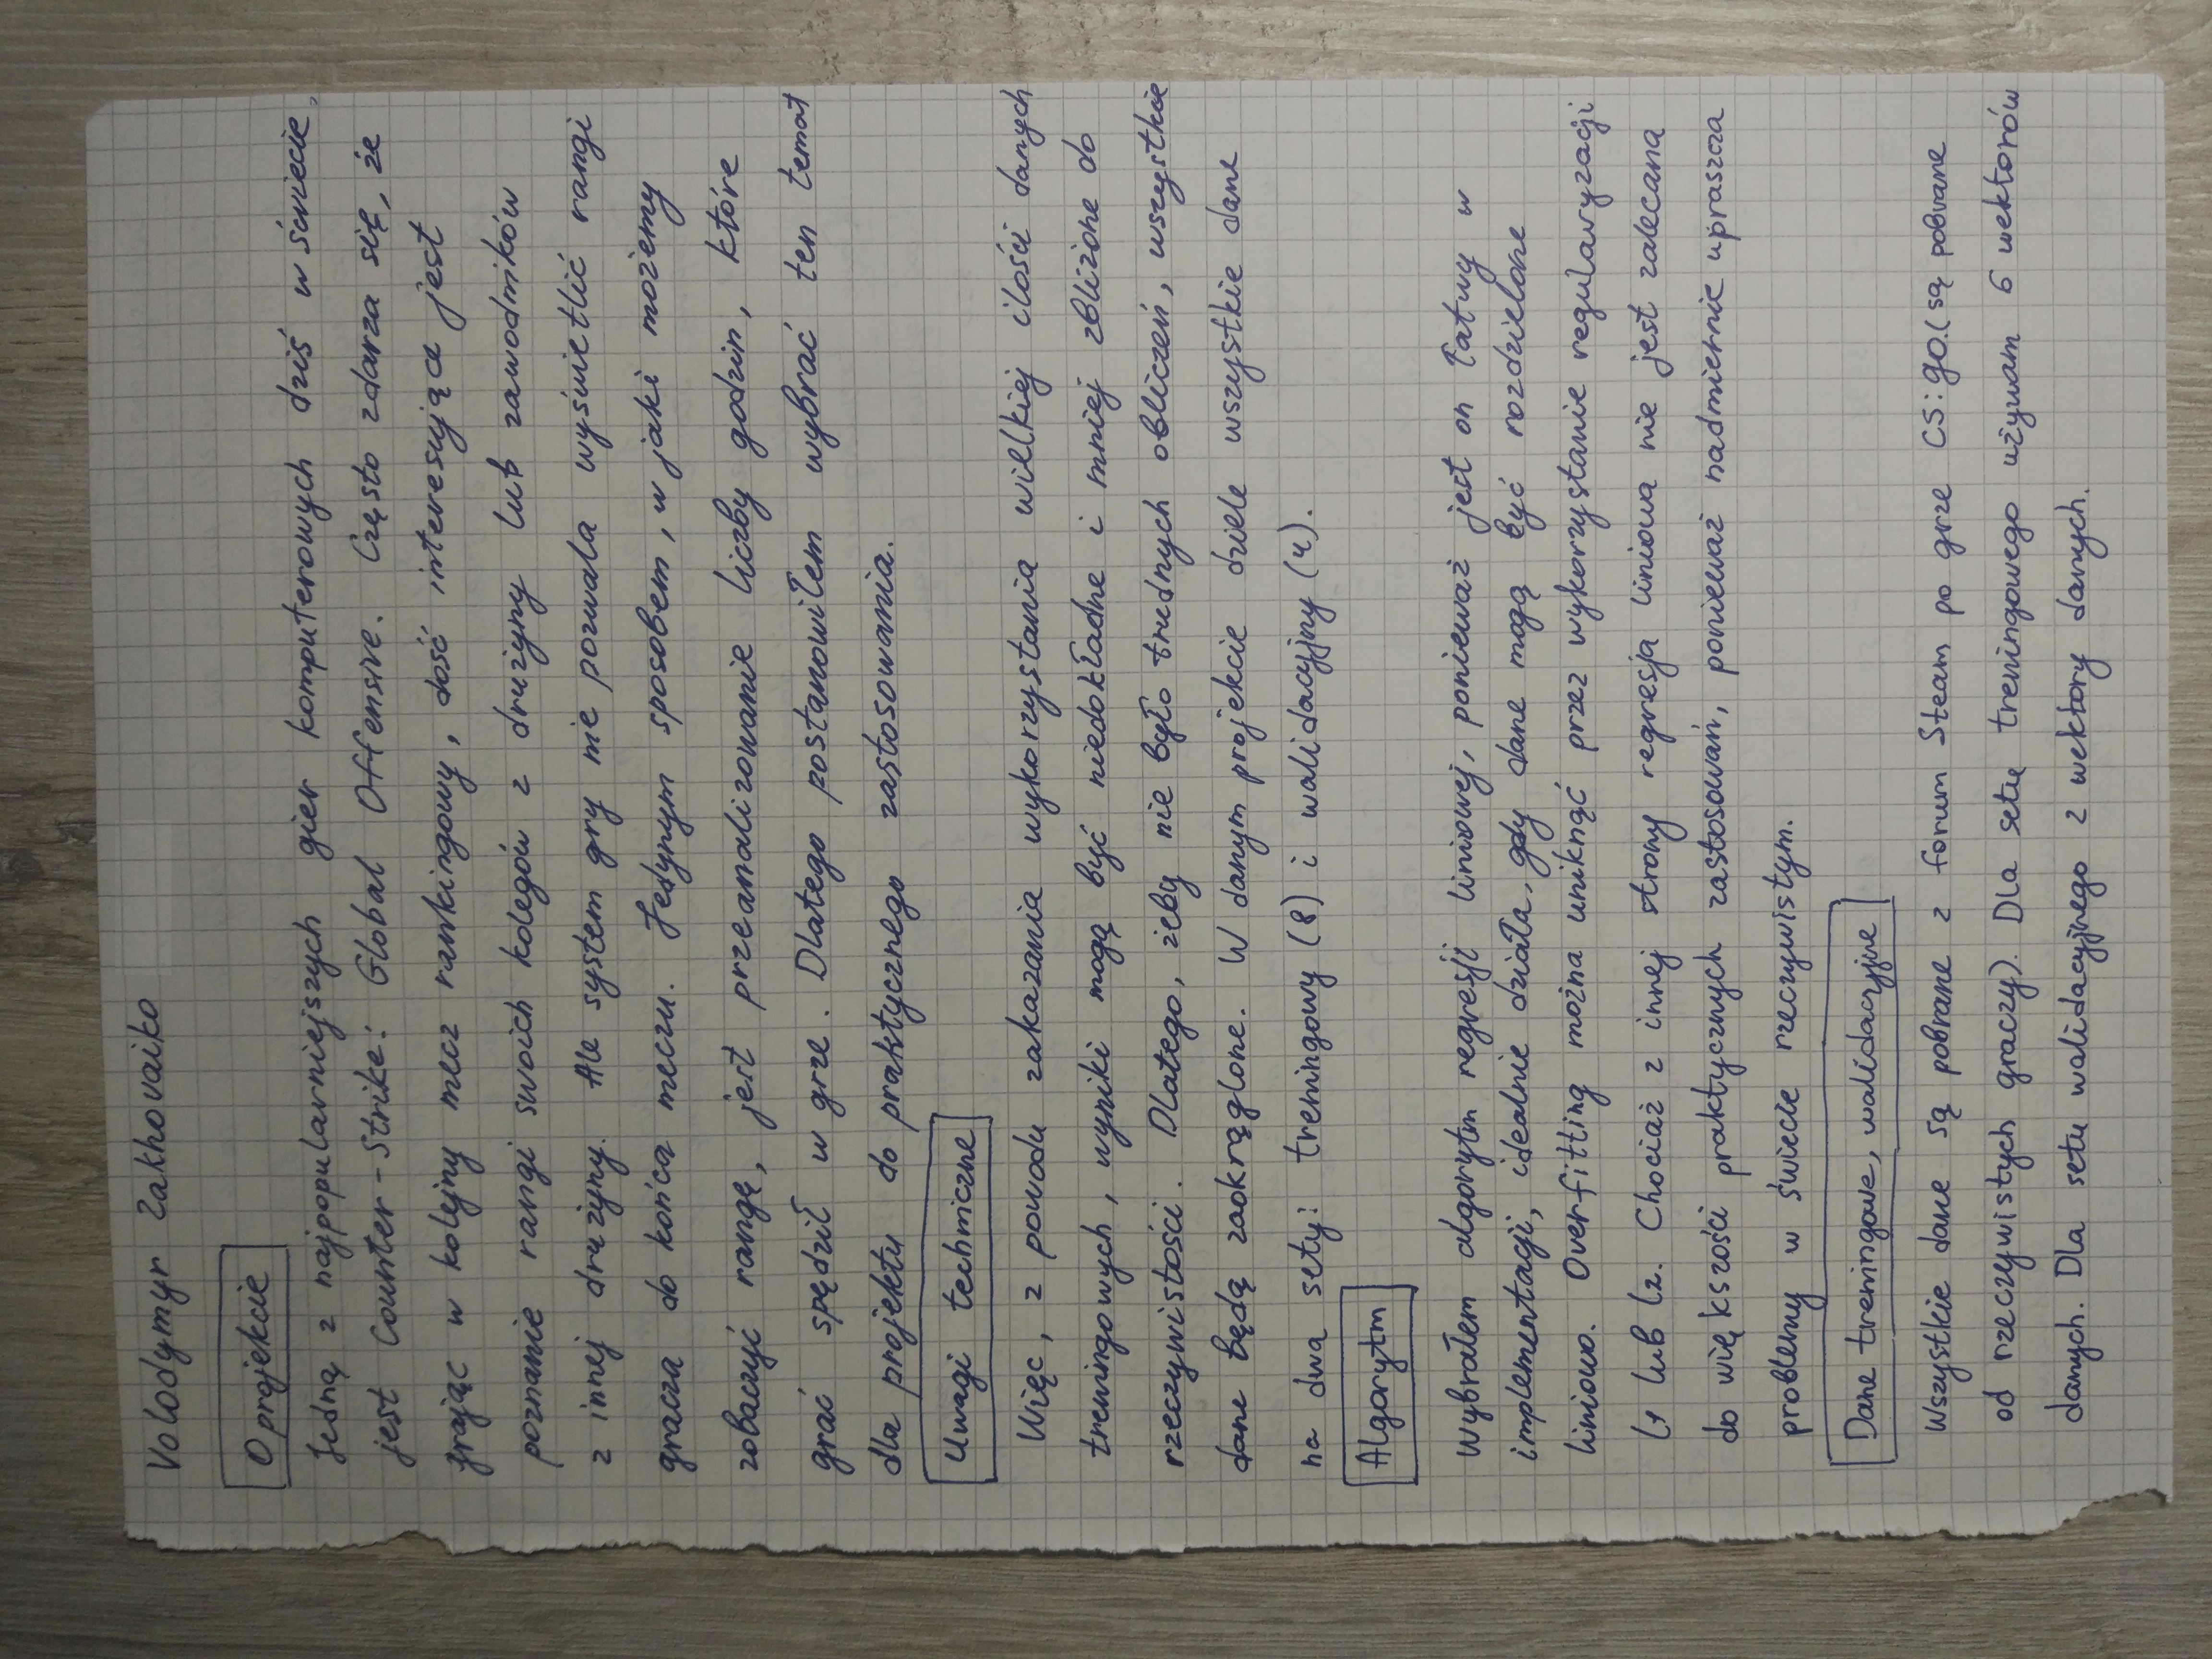 Volodymyr Zakhovaiko
O projekcie
Jedną z najpopularniejszych gier komputerowych dziś w świecie,
jest Counter-Strike: Global Offensive. Często zdarza się, że
grając w kolejny mecz rankingowy, dość interesujące jest
poznanie rangi swoich kolegów z drużyny lub zawodników
z innej drużyny. Ale system gry nie pozwala wyświetlić rangi
gracza do końca meczu. Jedynym sposobem, w jaki możemy
zobaczyć rangę, jest przeanalizowanie liczby godzin, które
grać spędził w grze. Dlatego postanowiłem wybrać ten temat
dla projektu do praktycznego zastosowania.
Uwagi techniczne
Więc, z powodu zakazania wykorzystania wilkiej ilości danych
treningowych, wyniki mogą być niedokładne i mniej zbliżone do
rzeczywistości. Dlatego, żeby nie było trudnych obliczeń, wszystkie
dane będą zaokrąglone. W danym projekcie dziele wszystkie dane
na dwa sety: treningowy (8) i walidacyjny (4).
Algorytm
Wybrałem algorytm regresji liniowej, ponieważ jest on łatwy w
implementacji, idealnie działa, gdy dane mogą być rozdzielone
liniowo. Over-fitting można uniknąć przez wykorzystanie regularyzacji
L1 lub L2. Chociaż z innej strony regresja liniowa nie jest zalecana
do większości praktycznych zastosowań, ponieważ nadmiernie upraszcza
problemy w świecie rzeczywistym.
Dane treningowe, walidacyjne
Wszystkie dane są pobrane z forum Steam po grze CS:go.(są pobrane
od rzeczywistych graczy). Dla setu treningowego używam 6 wektorów
danych. Dla setu walidacyjnego 2 wektory danych.